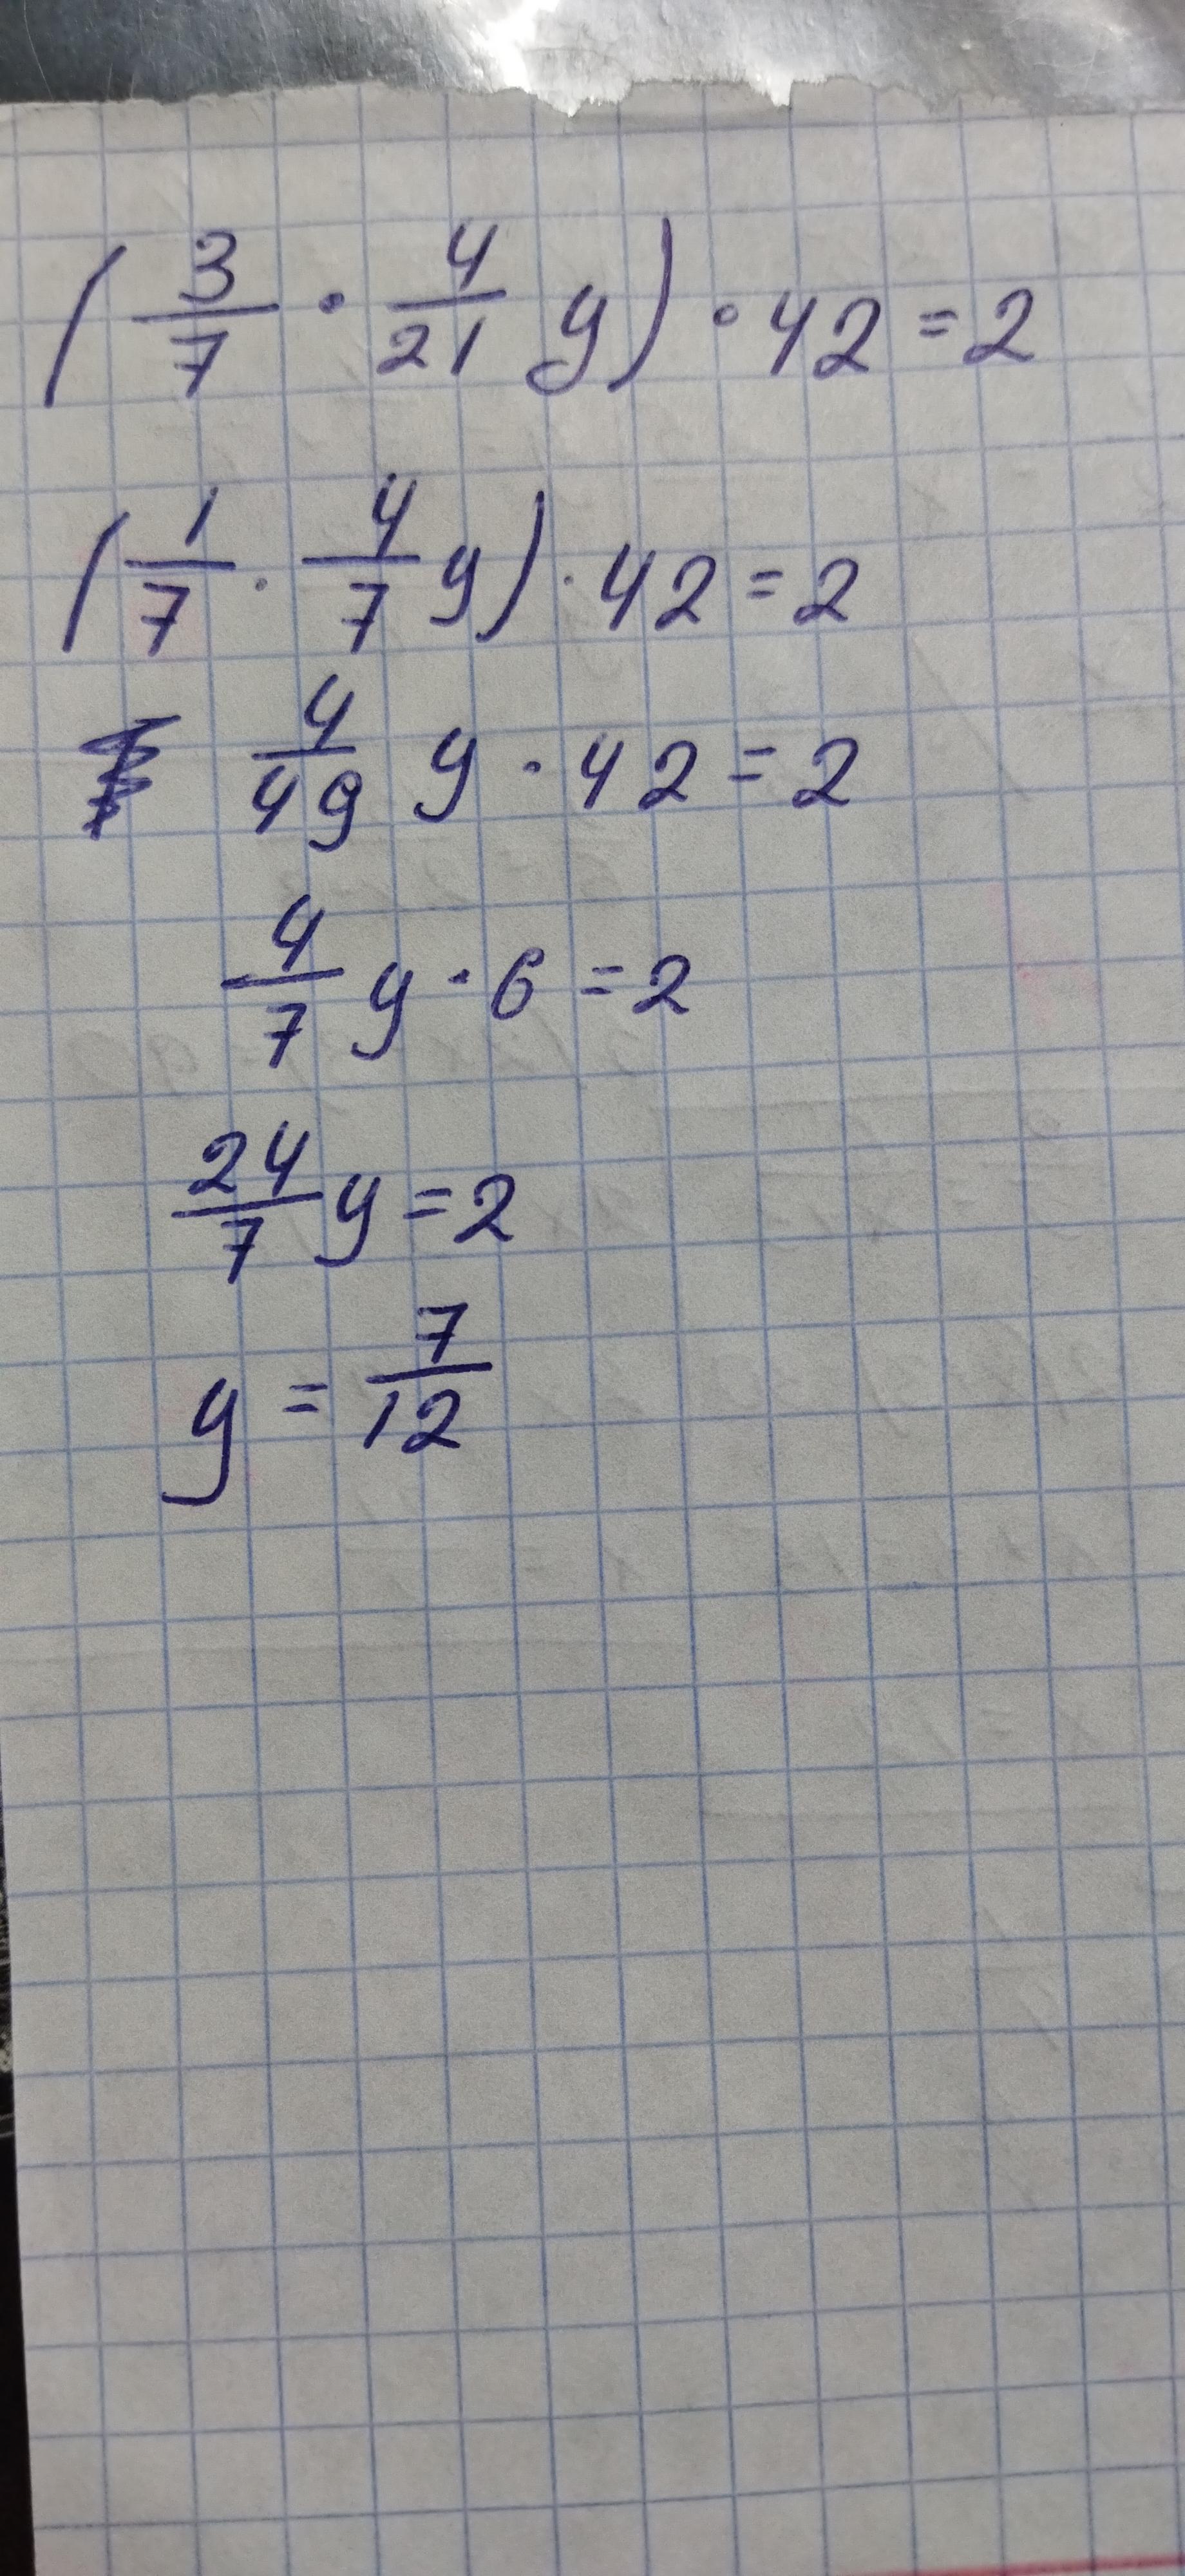 (3/7 · 4/21 y) · 42 = 2
(1/7 · 4/7 y) · 42 = 2
4/49 y · 42 = 2
4/7 y · 6 = 2
24/7 y = 2
y = 7/12